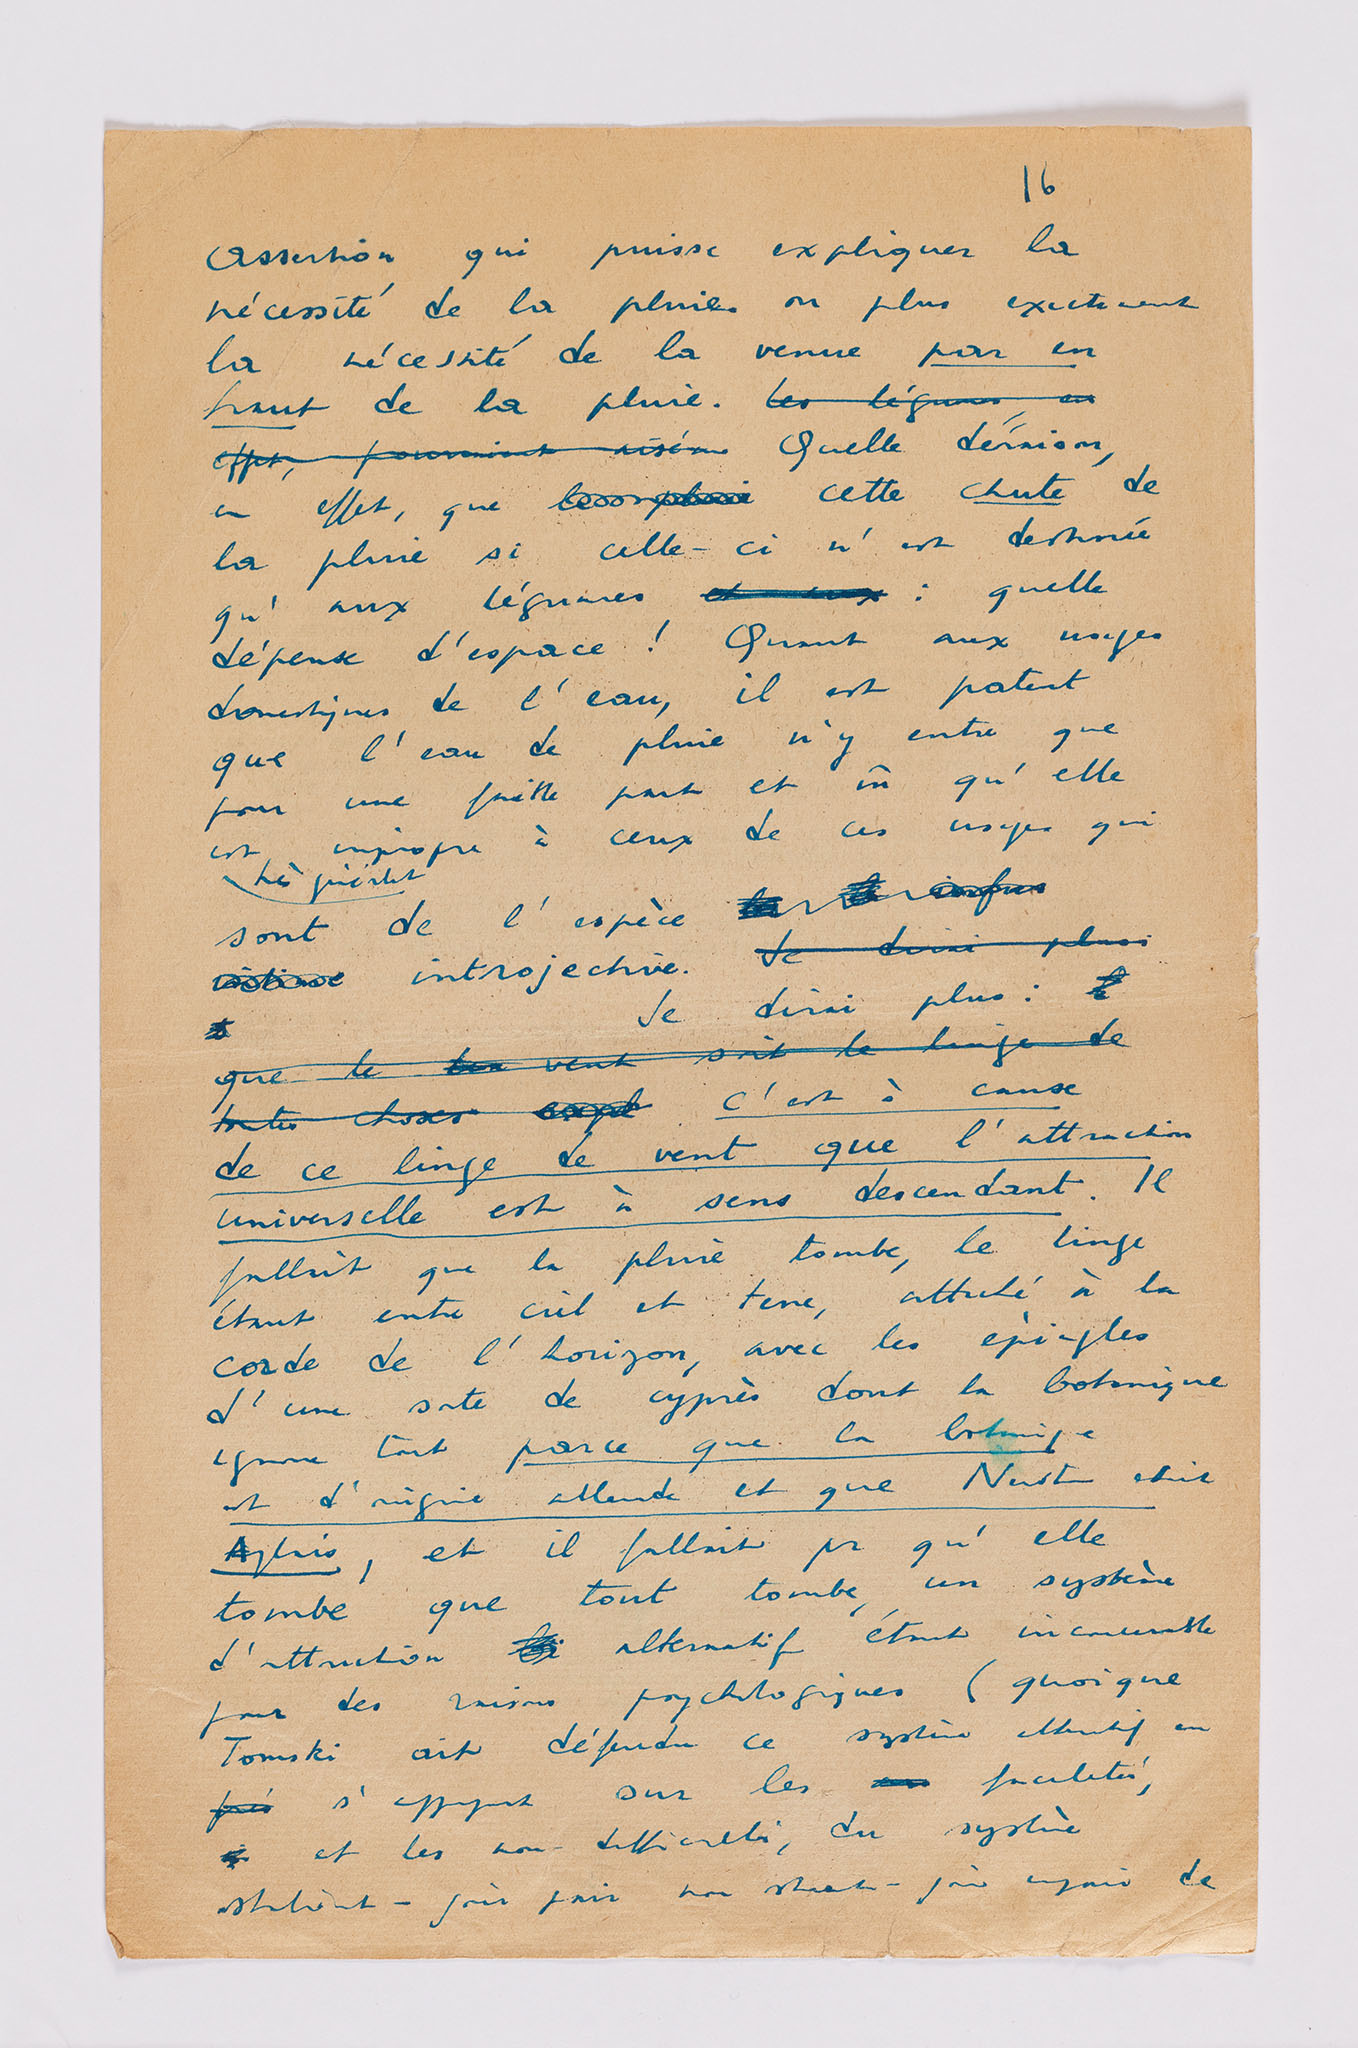 16
Assertion qui puisse expliquer la
nécessité de la pluie. ou plus exactement
la nécessité de la venue par en
haut de la pluie. les légumes, en
effet, pourraient aisém Quelle déraison,
en effet, que cette chute de
la pluie si celle-ci n'est destinée
qu'aux légumes et aux : quelle
dépense d'espace ! Quant aux usages
domestiques de l'eau, il est patent
que l'eau de pluie n'y entre que
pour une faible part et qu'elle
est impropre à ceux de ces usages qui
sont de l'espèce
introjective. Je dirai plus
Je dirai plus :
que le vent soit le linge de
toutes choses c'est à cause
de ce linge de vent que l'attraction
universelle est à sens descendant. Il
fallait que la pluie tombe, le linge
étant entre ciel et terre, attaché à la
corde de l'horizon, avec les épingles
d'une sorte de cyprès dont la botanique
ignore tout parce que la botanique
est d'origine allemde et que était
Anglais, et il fallait pr qu'elle
tombe que tout tombe, un système
d'attraction alternatif étant inconcevable
pour des raisons psychologiques (quoique
Tomski ait défendu ce système alternatif en
s'appuyant sur les facultés,
et les non-difficultés, du système
de